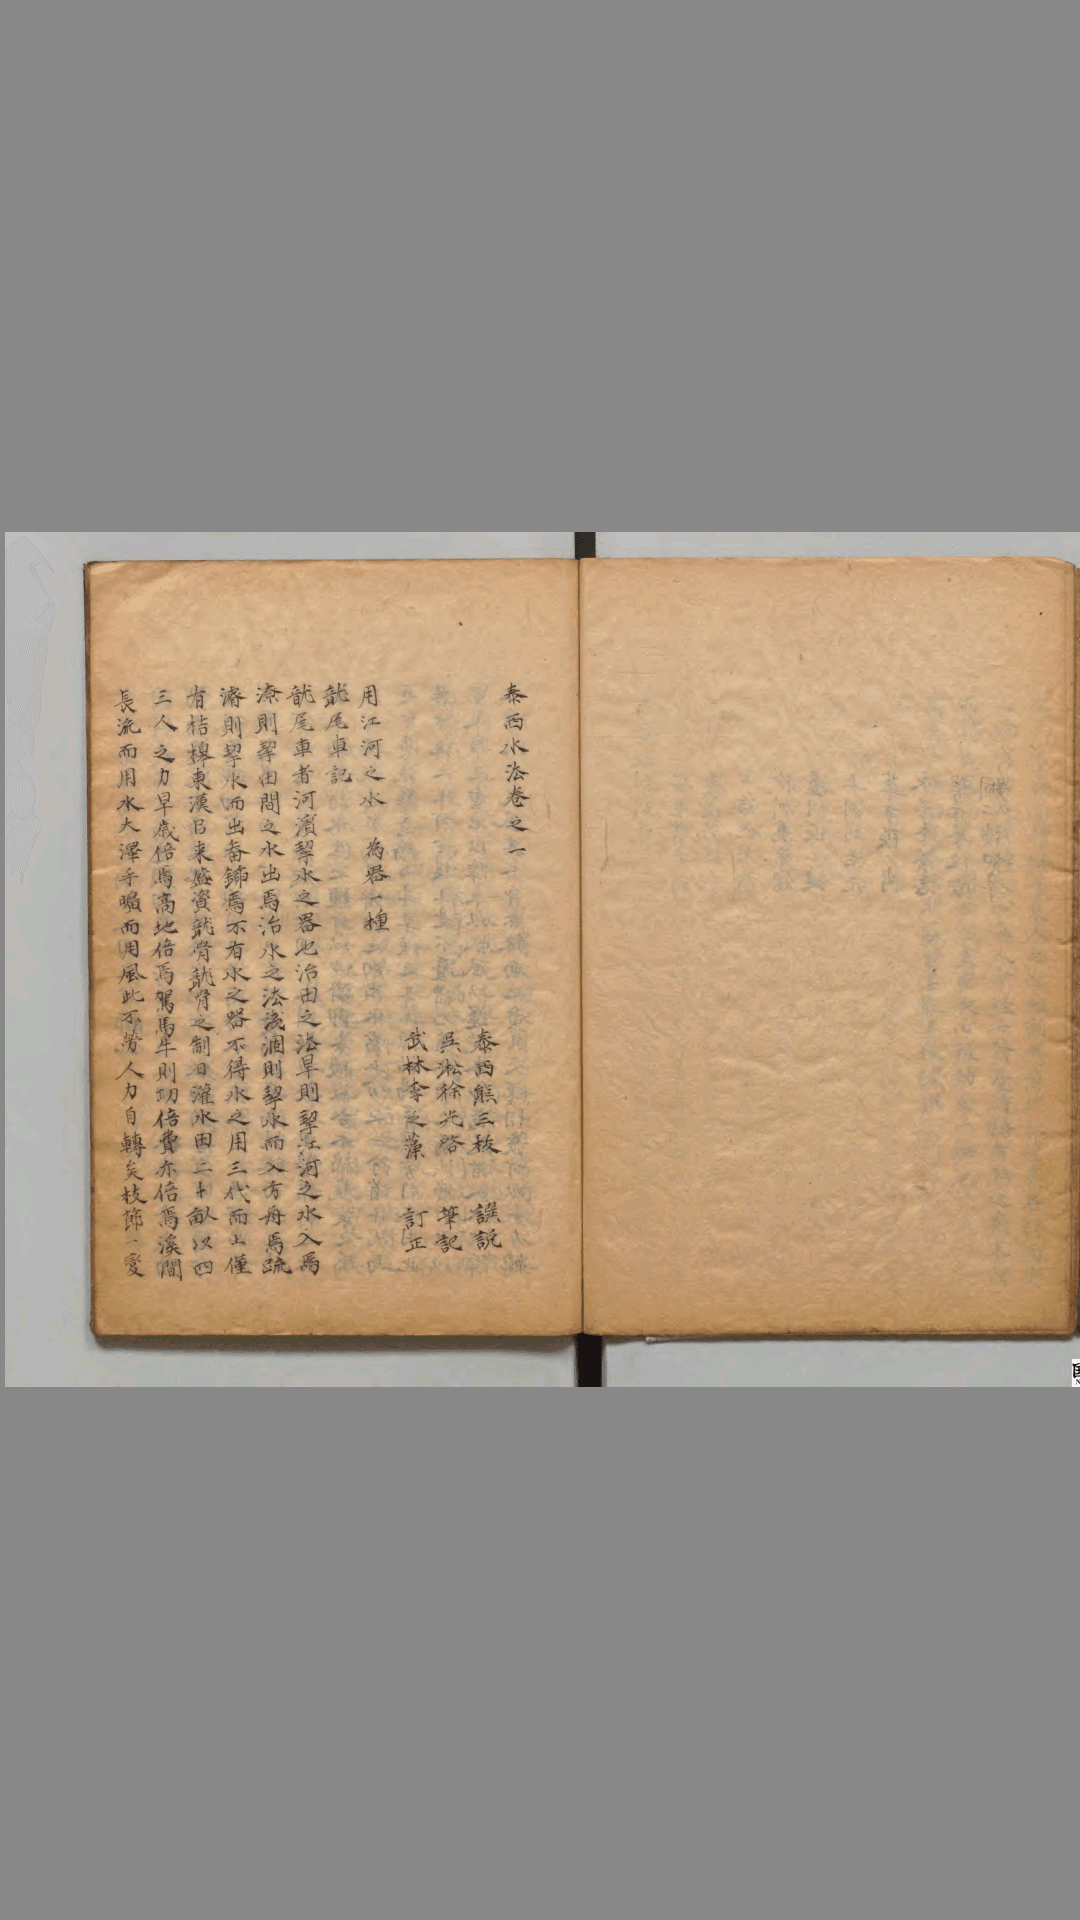 泰西水法卷之一
泰西熊三拔 譔説
吳淞徐光啓 筆記
武林李之藻 訂正
用江河之水 為器一種
龍尾車記
龍尾車者河濱挈水之器也治田之法旱則挈江河之水入焉
潦則挈田間之水出焉治水之法淺涸則挈水而入方舟焉疏
濬則挈水而出畚鍤焉不有水之器不得水之用三代而上僅
有桔橰東漢㠯来盛資龍骨龍骨之制曰灌水田二十畝以四
三人之力旱歲倍焉高地倍焉駕馬牛則功倍費亦倍焉溪澗
長流而用水大澤平曠而用風此不勞人力自轉矣枝節一𤔽